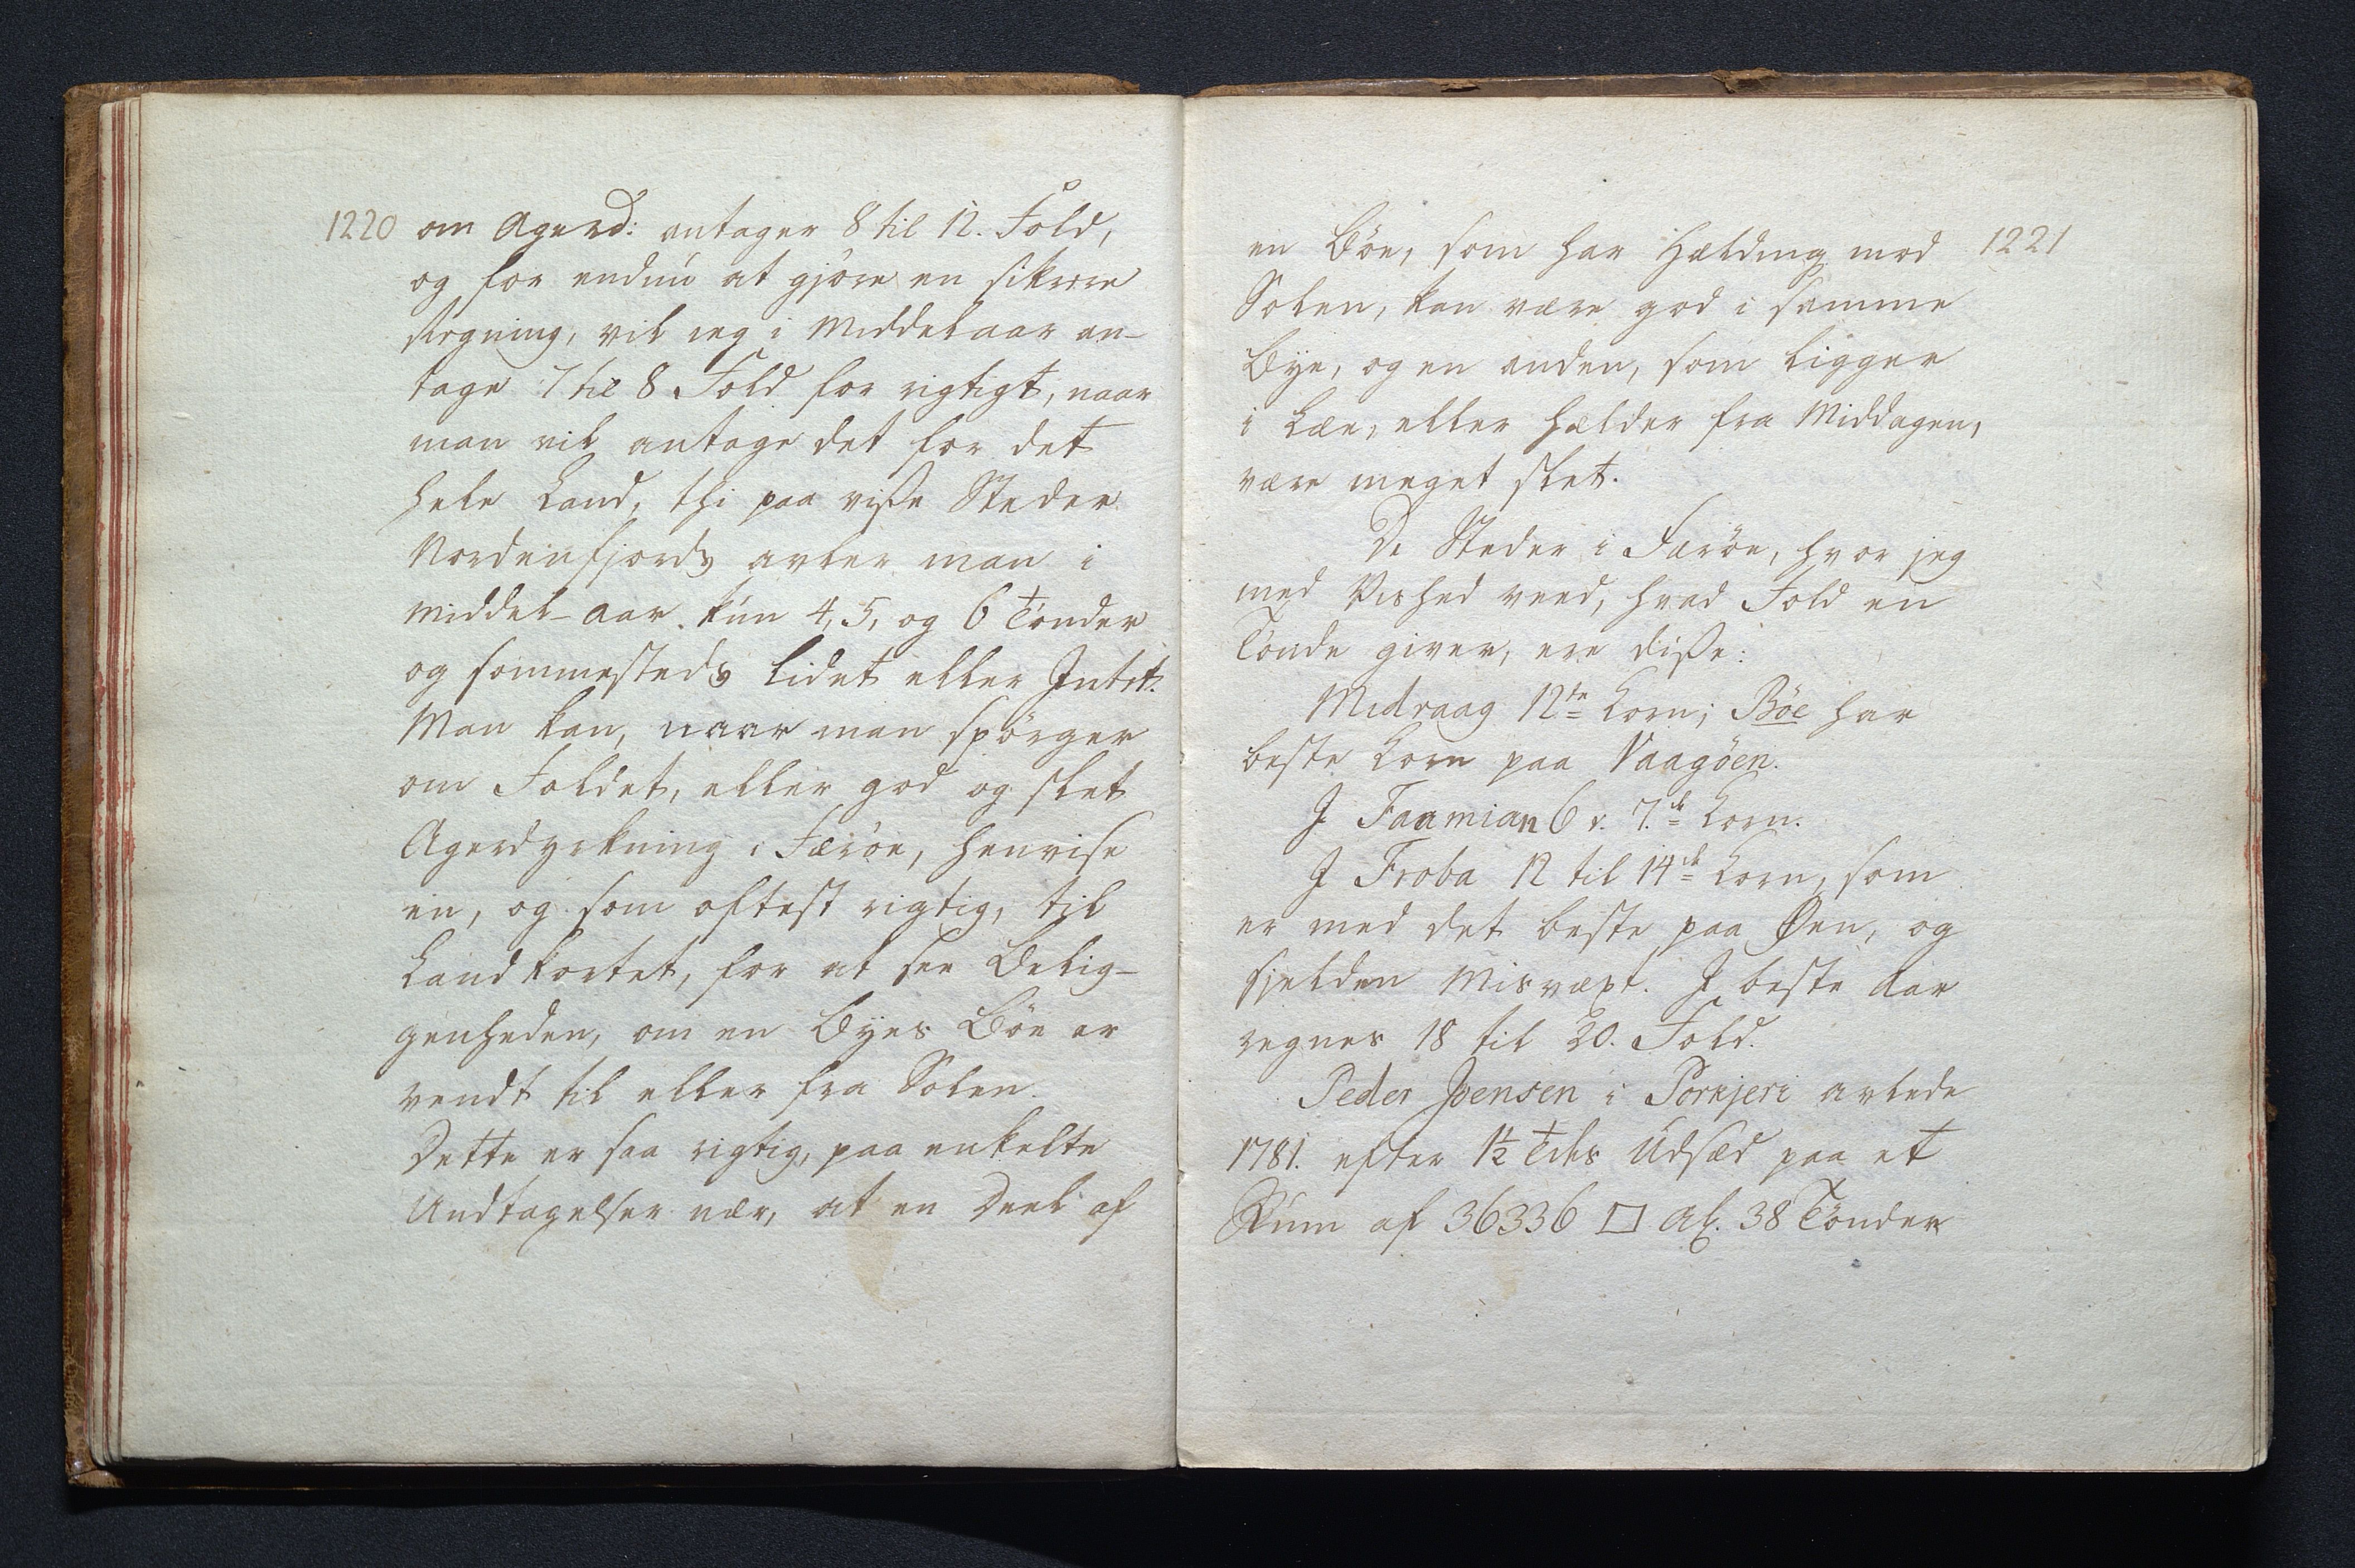 1220 om Agerd: antager 8 til 12. Fold,
og for endnú at gjöre en sikrere
slegning, vil jeg i Middelaar an-
tage 7 til 8 Fold for rigtigt, naar
man vil antage det for det
hele Land, thi paa visse Steder
Nordenfjords avler man i
Middel-Aar kún 4, 5, og 6 Tönder
og sommesteds lidet eller Intet.
Man kan, naar man spörger
om Foldet, eller god og slet
Agerdyrkning i Færöe, henvise
en, og som oftest rigtig, til
Landkortet, for at see Belig-
genheden, om en Byes Böe er
vendt til eller fra Solen.
Dette er saa rigtig, paa enkelte
Undtagelser nær, at en Deel af
en Böe, som har Hælding mod 1221
Solen, kan være god i samme
Bye, og en anden, som ligger
i Læe, eller hælder fra Middagen,
være meget slet.
De Steder i Færöe, hvor jeg
med Vished veed, hvad Fold en
Tönde giver, ere disse:
Midvaag 12te Korn; Böe har
beste Korn paa Vaagöen.
I Faamian 6 à 7de Korn.
I Froba 12 til 14de Korn, som
er med det beste paa Øen, og
sjelden Misvæxt. I beste Aar
regnes 18 til 20. Fold.
Peder Joensen i Porkjeri avlede
1781. efter 1½ Tdes Údsæd paa et
Rúm af 36336 □ Al. 38 Tönder